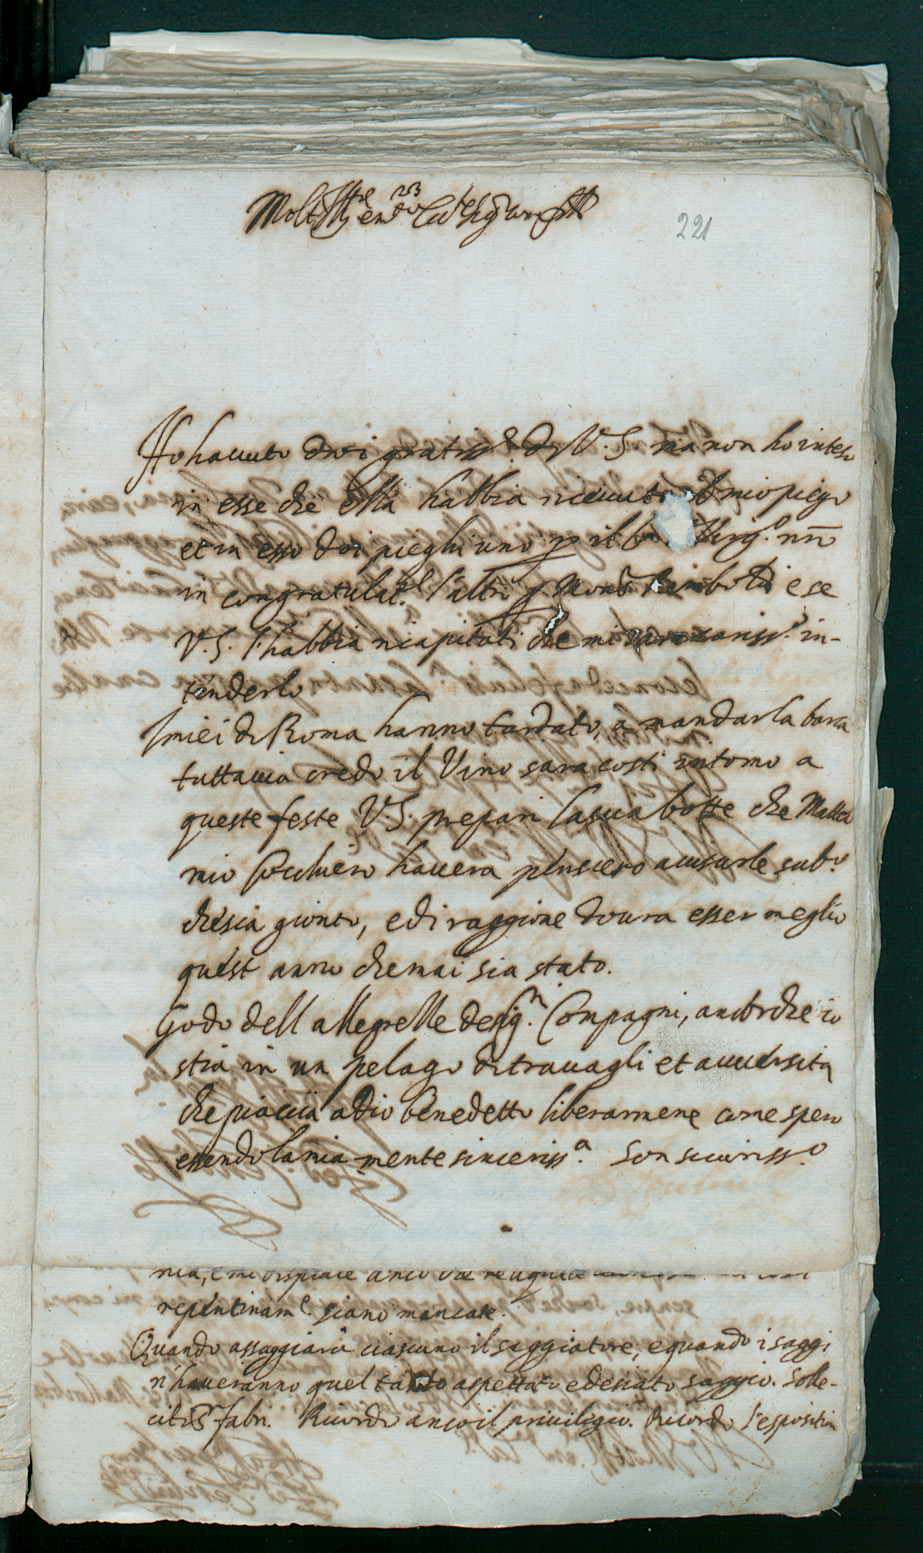 Molt Ill.re
253
221
Ho havuto doi gratiss.e di V. S. ma non ho inteso
in esse che ella habbia ricevuto mio piego
et in esso doi pieghi uno p il Virg.o nro
in congratulat.e l'altro p Mons.r e se
V. S. l'habbia ricapitati che mi cariss.o in-
tenderlo
I miei di Roma hanno tardato, a mandar la barca
tuttavia credo il Vino sara costi intorno a
queste feste V.S. prepari la sua botte che Matteo
mio Cocchiero havera pensiero avisarle sub.o
che sia gionto, e di raggione dovra esser meglio
quest anno che mai sia stato.
Godo dell allegrezze de Sig.ri Compagni, anchorche io
stia in un pelago di travagli et avversita
che piaccia a Dio benedetto liberarmene come spero
essendo la mia mente sinceriss.a Son sicuriss.o
mia, e mi dispiace anco che
repentinam.e siano mancate.
Quando assaggiarà ciascuno il saggiatore, e quando i saggi
n'haveranno quel tanto aspettato e desiato saggio. Solle-
citi fabri. Ricordo anco il privilegio. Ricordo l'espositio